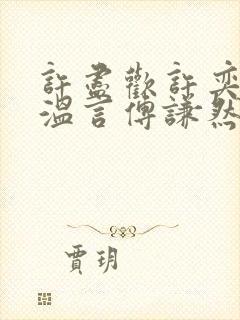 許盡歡許奕
溫言傅謙然
賈玥